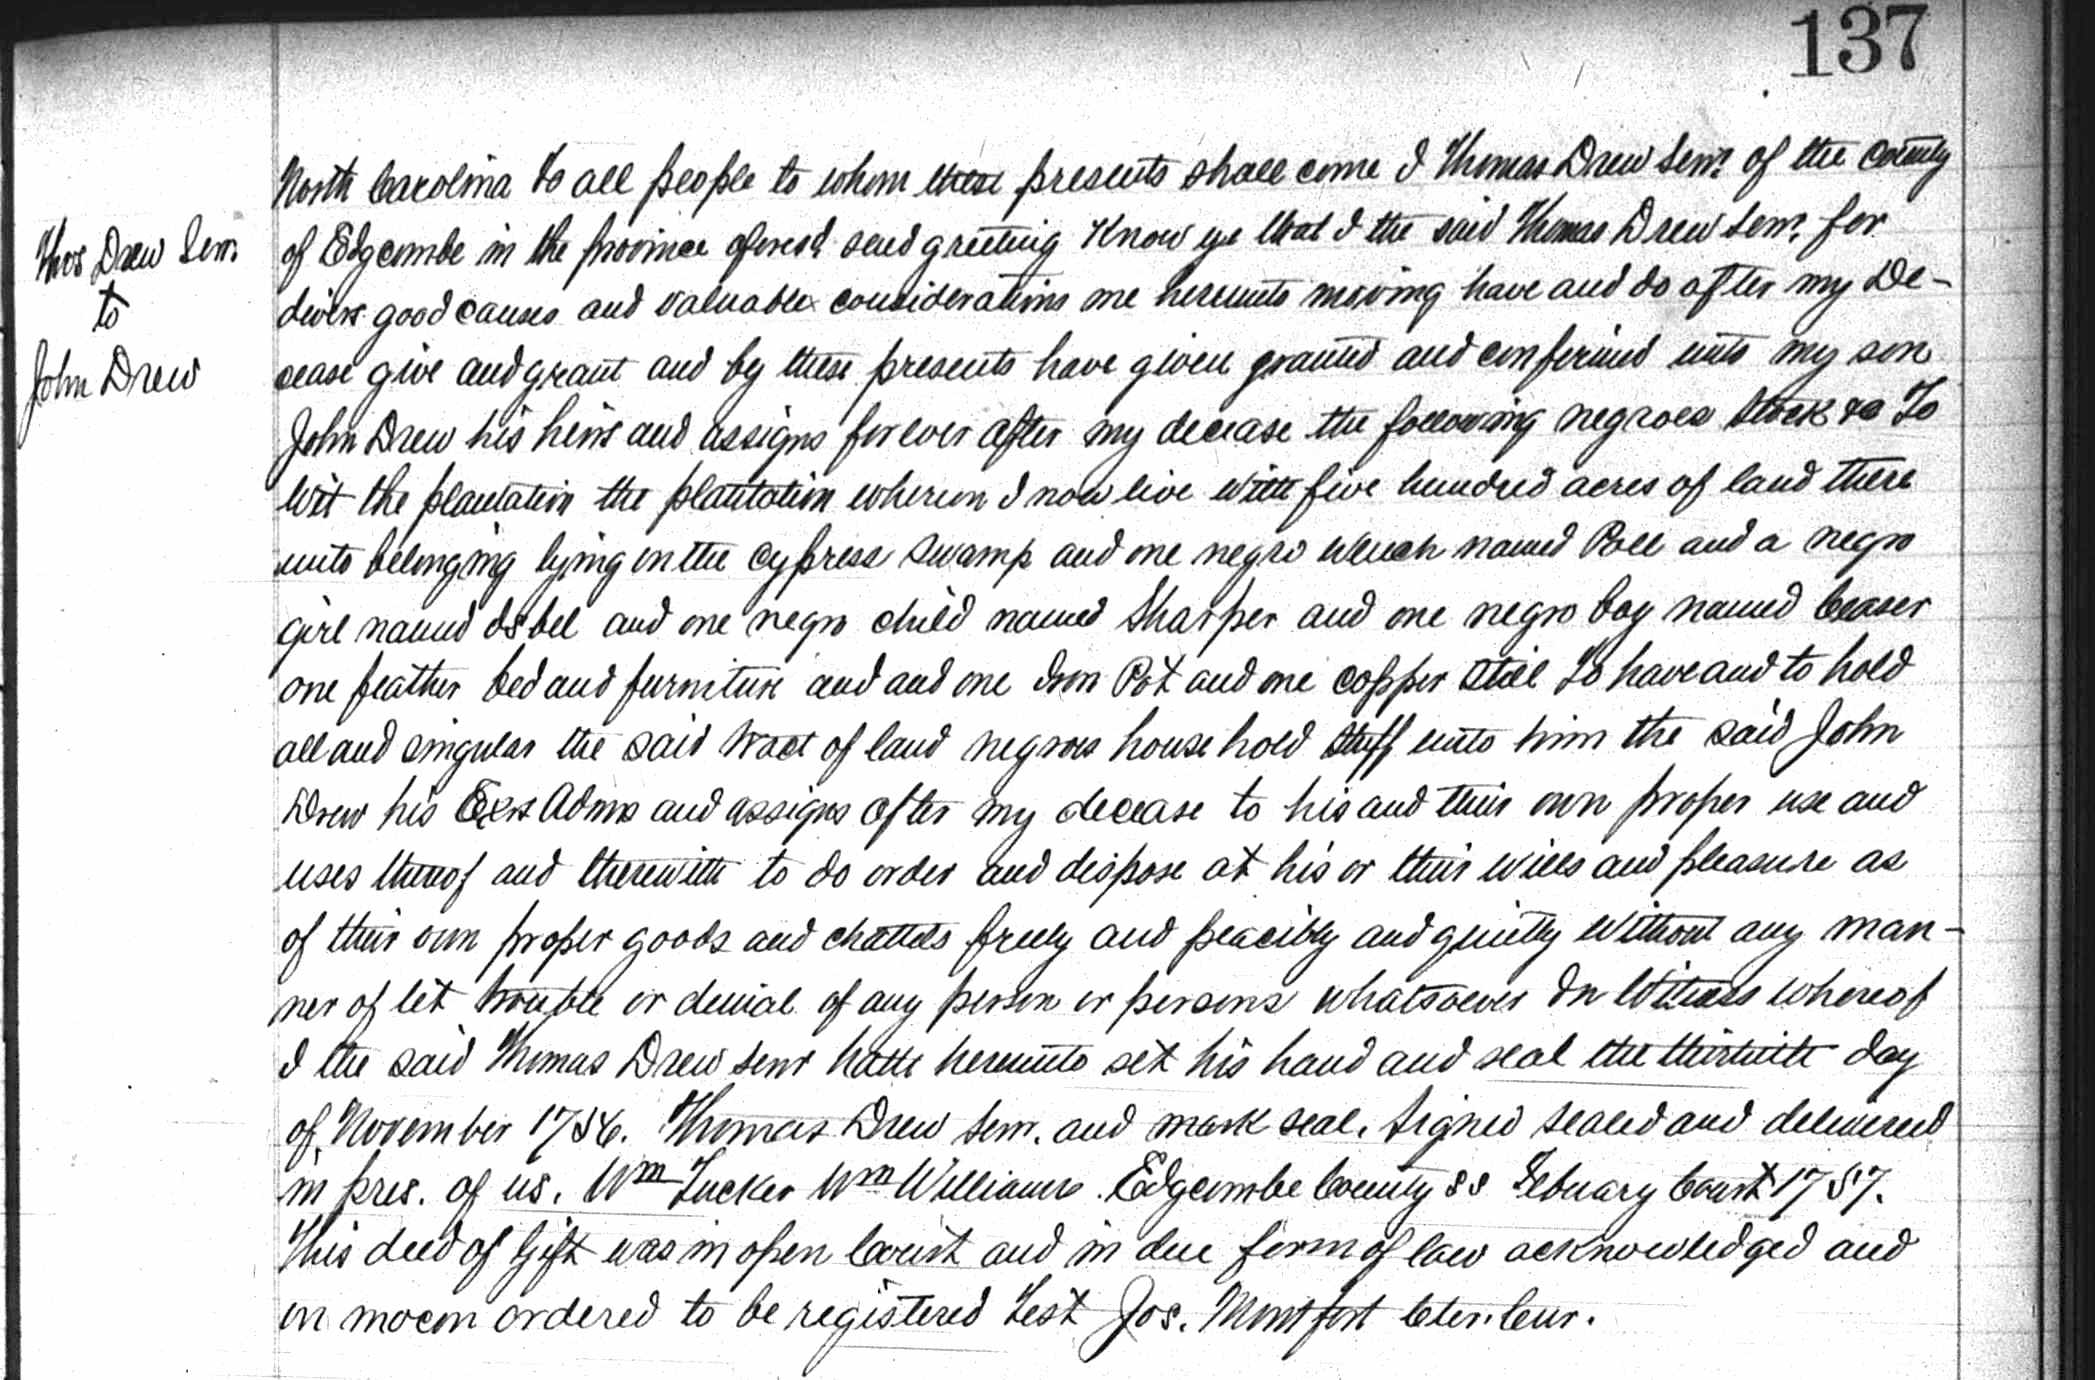 137
Thos Drew Senr.
to
John Drew
North Carolina to all people to whom these presents shall come I Thomas Drew Senr. of the county
of Edgcombe in the province aforesd. send greeting Know ye that I the said Thomas Drew Senr. for
divers good causes and valuable considerations me hereunto moving have and do after my De-
cease give and grant and by these presents have given granted and confirmed unto my son
John Drew his heirs and assigns forever after my decease the following negroes Stock &c To
Wit the plantation the plantation whereon I now live with five hundred acres of land there
unto belonging lying on the Cypress Swamp and one negro wench named Poll and a negro
girl named Isbel and one negro child named Sharper and one negro boy named Ceaser
one feather bed and furniture and and one Iron Pot and one copper Still To have and to hold
all and singular the said tract of land negroes house hold stuff unto him the said John
Drew his Exrs Admrs and assigns after my decease to his and their own proper use and
uses thereof and therewith to do order and dispose at his or their wills and pleasure as
of their own proper goods and chattels freely and peacibly and quietly without any man-
ner of let trouble or denial of any person or persons whatsoever In Witness whereof
I the said Thomas Drew Senr hath hereunto set his hand and seal the thirtieth day
of November 1756. Thomas Drew Senr. and mark seal. Signed sealed and delivered
in pres. of us. Wm Tucker Wm Williams. Edgcombe County ss Febuary Court 1757.
This deed of Gift was in open Court and in due form of law acknowledged and
on mocon ordered to be registered Test Jos. Montfort Cler. Cur.